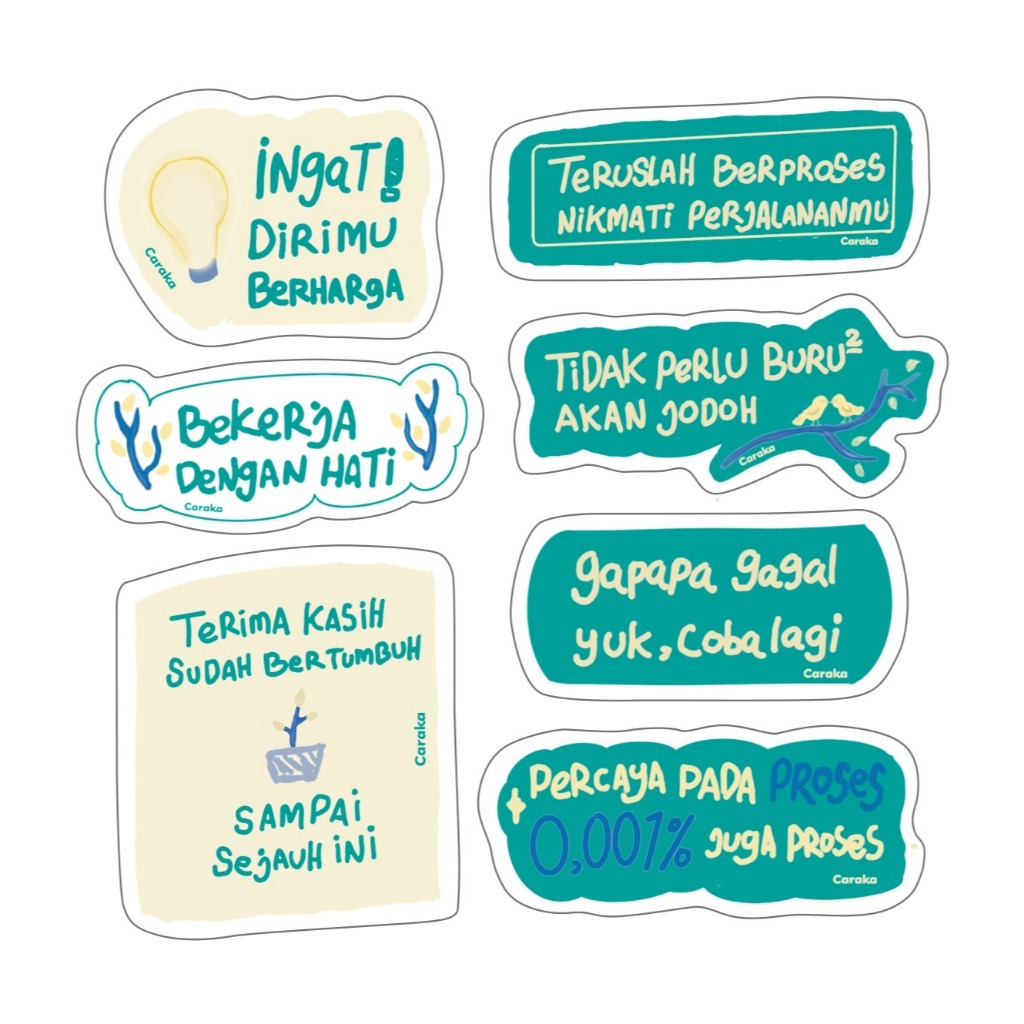 İNgaT!
DiRiMU
BERHARgA
Caraka
BeKeRjA
DeNGAN HATi
Caraka
TeRiMA KASiH
SUDAH BeRTUMBUH
Caraka
SAMPAi
SejAUH iNi
TeRUSLAH BeRPROSeS
NiKMATi PeRJALANANMU
Caraka
TiDAK PeRLU BURU²
AKAN JODOH
Caraka
gapapa gagal
yuk, coba lagi
Caraka
PeRCAYA PADA PROSeS
0,001% JUGA PROSeS
Caraka